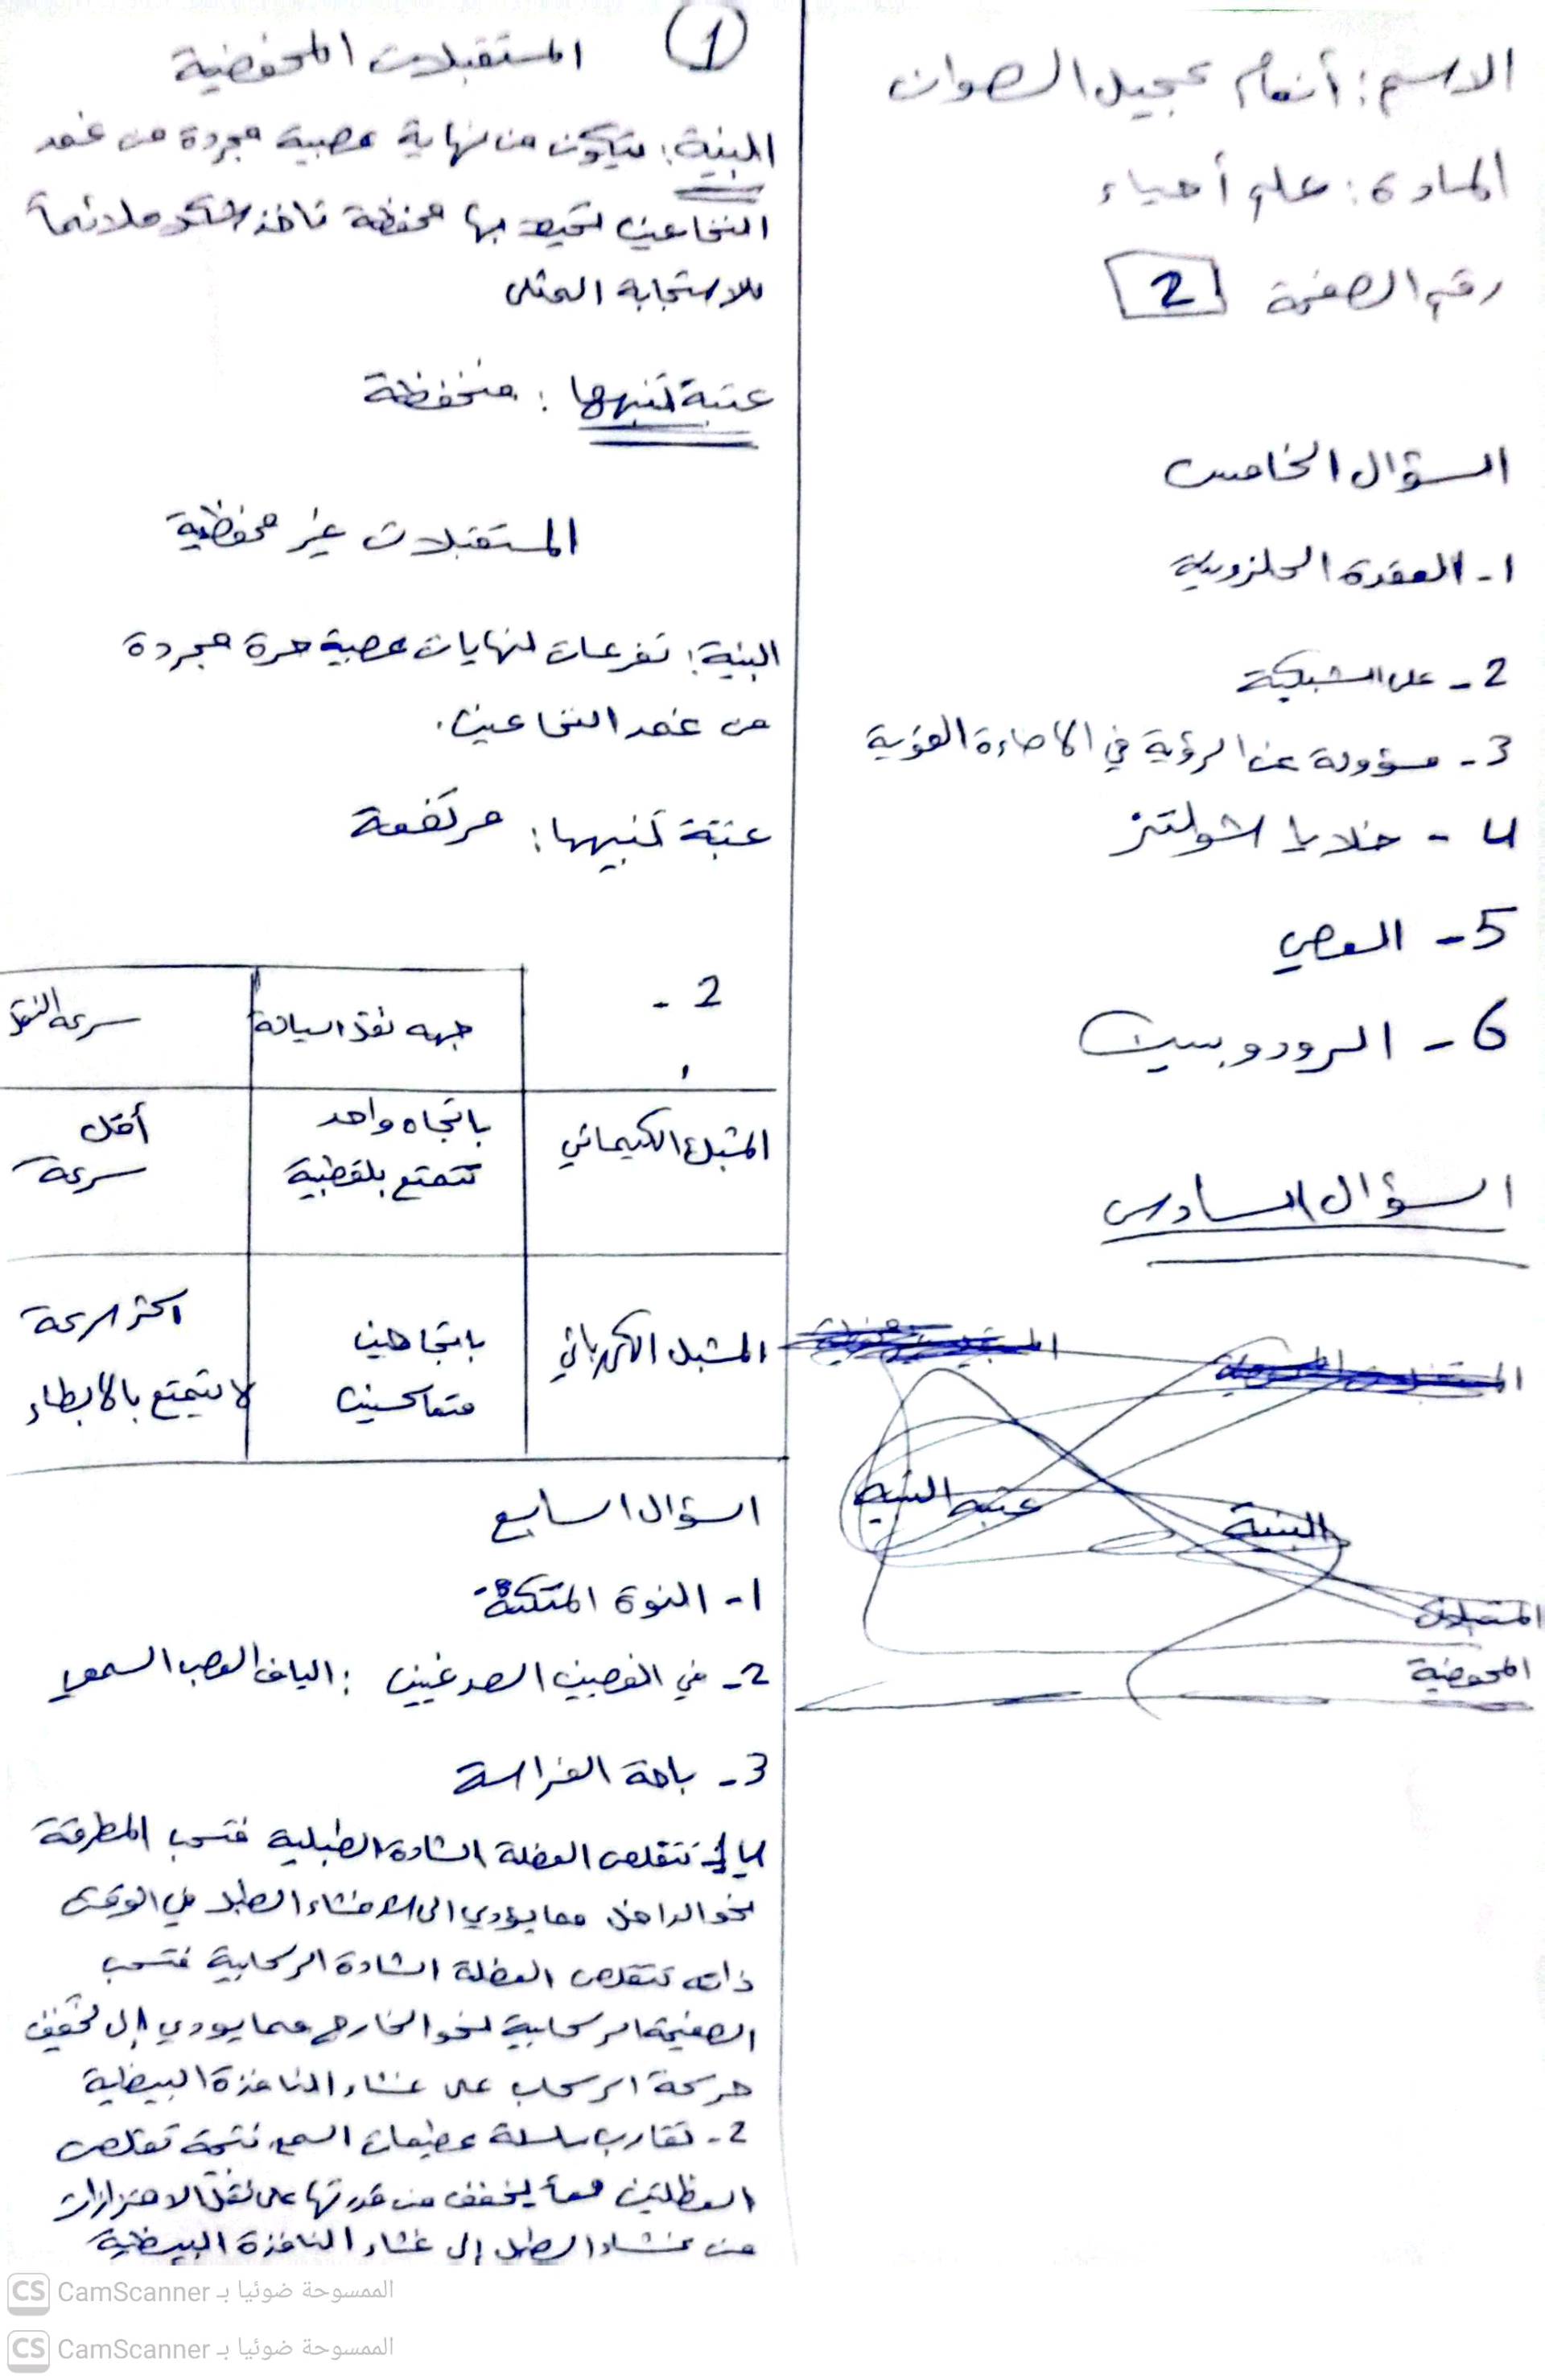 الاسم: أنعام عجيل الصوان
المادة: علم أحياء
رقم الصفحة 2
السؤال الخامس
1- العقدة الحلزونية
2- على الشبكية
3- مسؤولة عن الرؤية في الاضاءة القوية
4- خلايا شولتز
5- العصي
6- الرودوبسين
السؤال السادس
عتبه التنبيه
البنية
المستقبلات
المحفضية
1
المستقبلات المحفضية
البنية: يتكون من نهاية عصبية مجردة من غمد
النخاعين تحيط بها محفظة تاخذ شكلاً ملائماً
للاستجابة المثلى
عتبة تنبيهها: منخفظة
المستقبلات غير محفظية
البنية: تفرعات لنهايات عصبية حرة مجردة
من غمد النخاعين.
عتبة تنبيهها: مرتفعة
2-
جهه نقل السيالة
سرعه النقل
المشبك الكيميائي
باتجاه واحد
تتمتع بلقطبية
أقل
سرعة
المشبك الكهربائي
باتجاهين
متعاكسين
اكثر سرعة
لا يتمتع بالابطاء
السؤال السابع
1- النوة المتكئة
2- في الفصين الصدغيين: الياف العصب السمعي
3- باحة الفراسة
4- 1- تتقلص العضلة الشادة الطبلية فتسحب المطرقة
نحو الداخل مما يؤدي الى شد غشاء الطبل في الوقت
ذاته تتقلص العضلة الشادة الركابية فتسحب
الصفيحة الركابية نحو الخارج مما يؤدي إلى تخفيف
حركة الركاب على غشاء النافذة البيضية
2- تقارب سلسلة عظيمات السمع نتيجة تقلص
العظلتين معاً يخفف من قدرتها على نقل الاهتزازات
من غشاء الطبل إلى غشاء النافذة البيظية
CS CamScanner الممسوحة ضوئيا بـ
CS CamScanner الممسوحة ضوئيا بـ